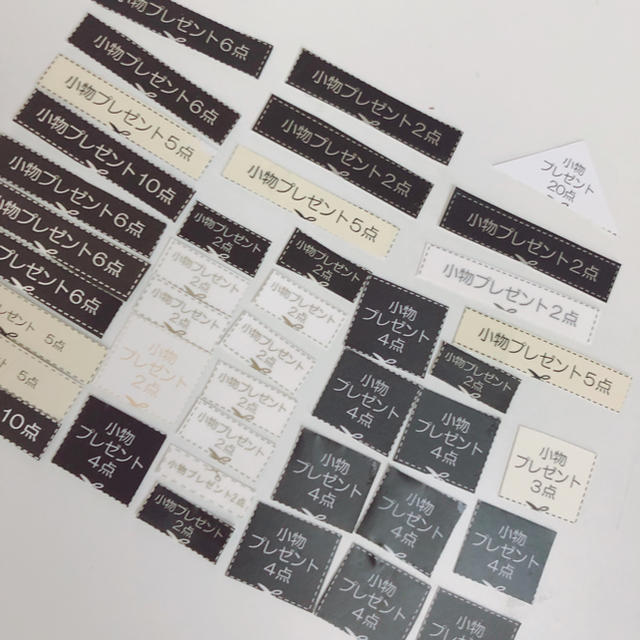 小物プレゼント6点
小物プレゼント6点
小物プレゼント5点
小物プレゼント10点
小物プレゼント6点
小物プレゼント6点
小物プレゼント6点
5点
5点
10点
小物プレゼント2点
小物プレゼント2点
小物プレゼント5点
小物
プレゼント
20点
小物プレゼント2点
小物プレゼント2点
小物プレゼント5点
小物プレゼント
2点
小物プレゼント
2点
小物プレゼント
2点
小物プレゼント
2点
小物プレゼント
2点
小物プレゼント
2点
小物
プレゼント
2点
小物プレゼント
2点
小物プレゼント
2点
小物プレゼント2点
小物プレゼント
2点
小物
プレゼント
4点
小物プレゼント
2点
小物
プレゼント
4点
小物
プレゼント
4点
小物
プレゼント
4点
小物
プレゼント
4点
小物
プレゼント
4点
小物
プレゼント
3点
小物
プレゼント
4点
小物
プレゼント
4点
小物
プレゼント
4点
小物
プレゼント